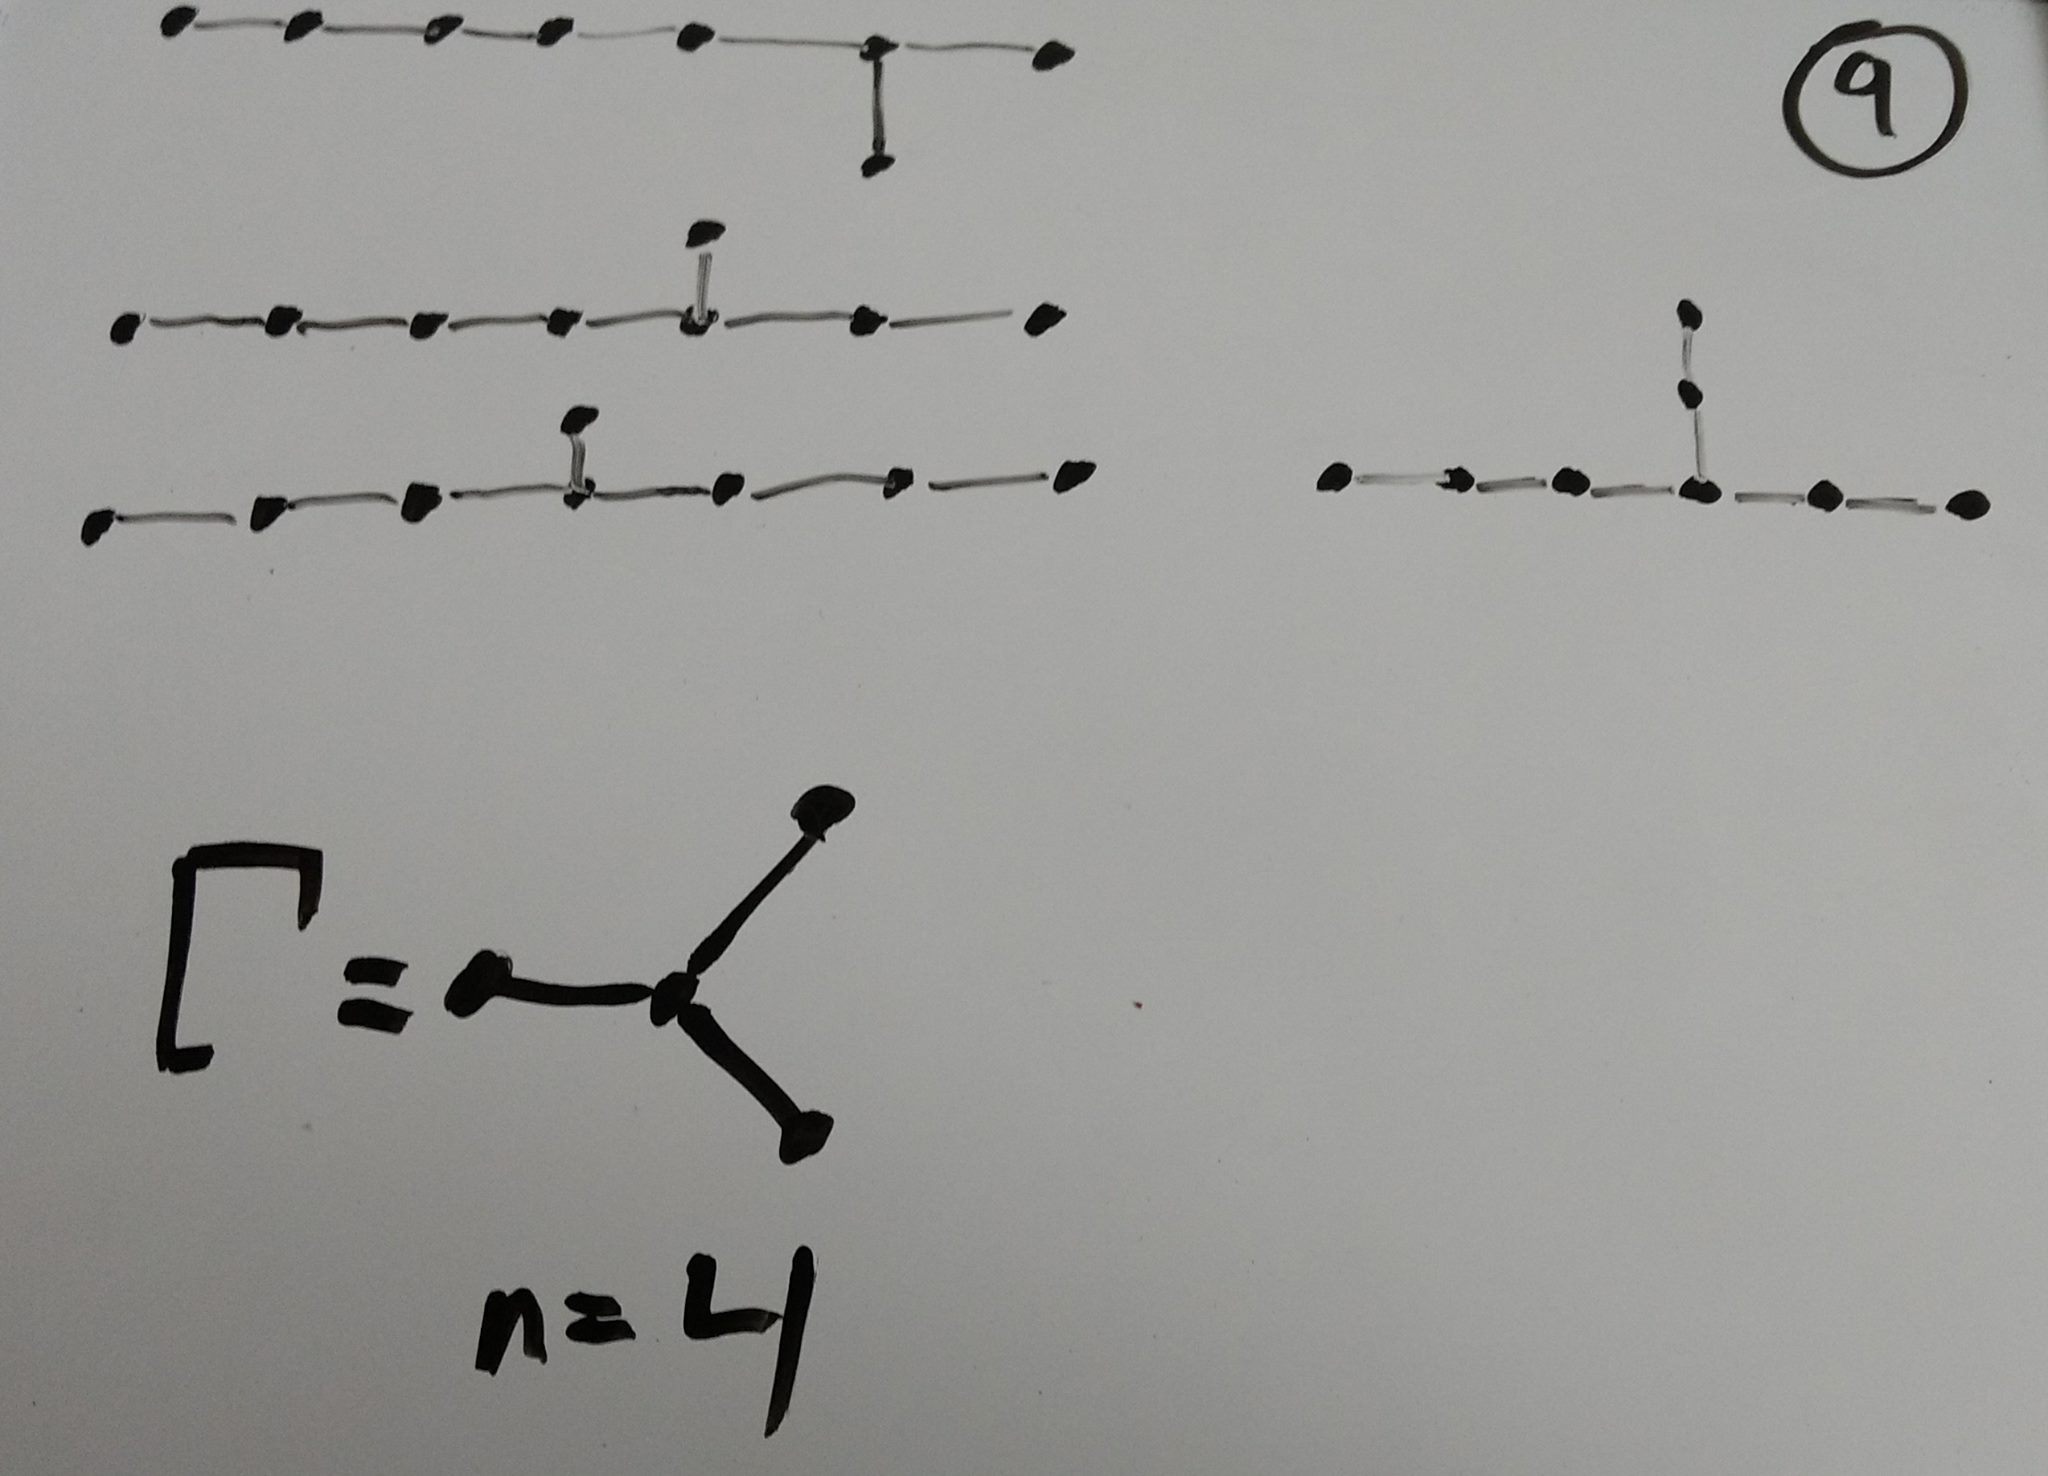 9
Γ =
n = 4